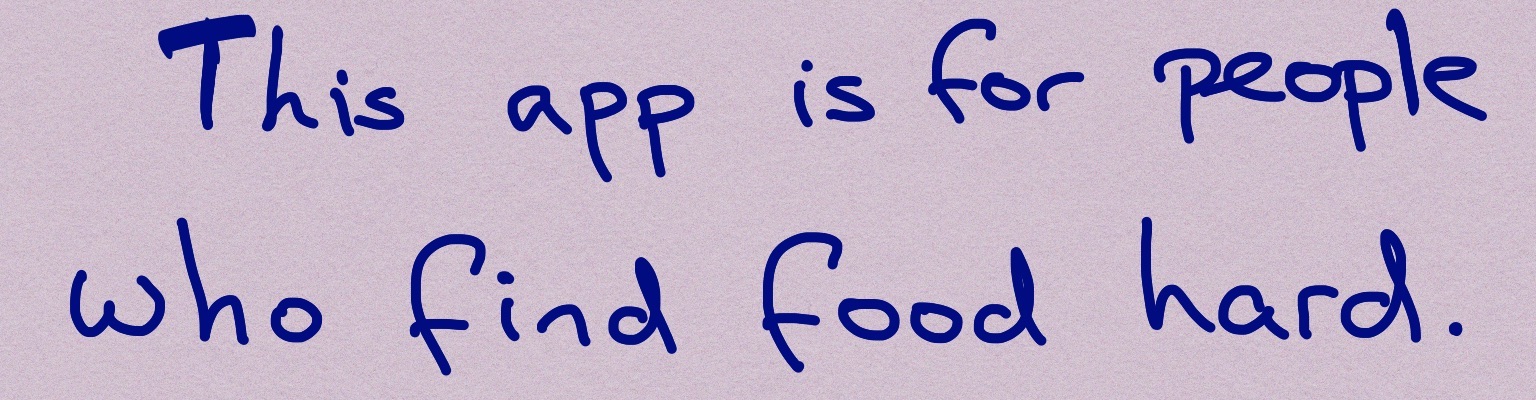 This app is for people
who find food hard.